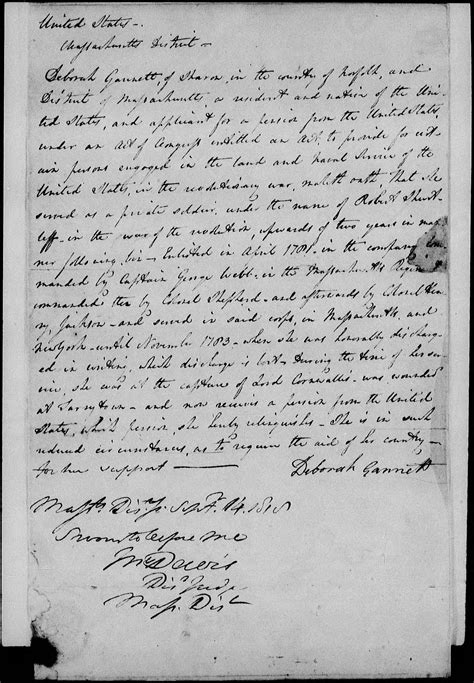 United States.
Massachusetts District.
Deborah Gannett, of Sharon, in the county of Norfolk, and
District of Massachusetts, a resident and native of the Uni-
ted States, and applicant for a pension from the United States,
under an Act of Congress entitled an Act, to provide for cert-
ain persons engaged in the land and Naval Service of the
United States, in the revolutionary war, maketh oath, That she
served as a private soldier, under the name of Robert Shurt-
leff - in the war of the revolution, upwards of two years in man-
ner following, viz - Enlisted in April 1781 in the company com-
manded by Captain George Webb in the Massachusetts Regiment
commanded then by Colonel Shepherd - and afterwards by Colonel Hen-
ry Jackson - and served in said corps, in Massachusetts, and
New York - until November 1783 - when she was honorably discharg-
ed in writing, which discharge is lost - During the time of her ser-
vice, she was at the capture of Lord Cornwallis - was wounded
at Tarrytown - and now receives a pension from the United
States, which pension she hereby relinquishes - She is in such
reduced circumstances, as to require the aid of her country -
for her support -
Deborah Gannett
Massts Dist. Sept. 14. 1818
Sworn to before me
Davis
Dis Judge
Mass. Dist